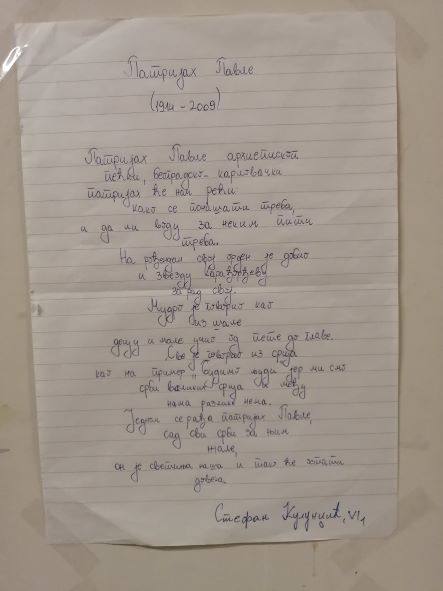 Патријах Павле
(1914 - 2009)
Патријах Павле архиепископ
пећки, београдско-карловачки
патријах ће нам рећи
како се понашати треба,
и да ли воду за неким пити
треба.
На рођендан свој орден је добио
и звезду Карађорђеву
за рад свој.
Мудро је говорио као
из шале
децу и мале учио од пете до главе.
Све је говорио из срца
као на пример „Будимо људи јер ми смо
срби великог срца и међу
нама разлике нема.
Једном се рађа патријах Павле,
сад сви срби за њим
жале,
он је светиња наша и тако ће остати
довека.
Стефан VI1